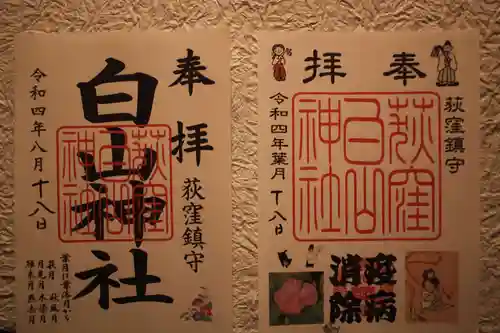 奉拝
荻窪鎮守
白山神社
荻窪白山神社
令和四年八月十八日
葉月は葉落月から
荻月
奉拝
荻窪鎮守
荻窪白山神社
令和四年葉月
十八日
疫病消除